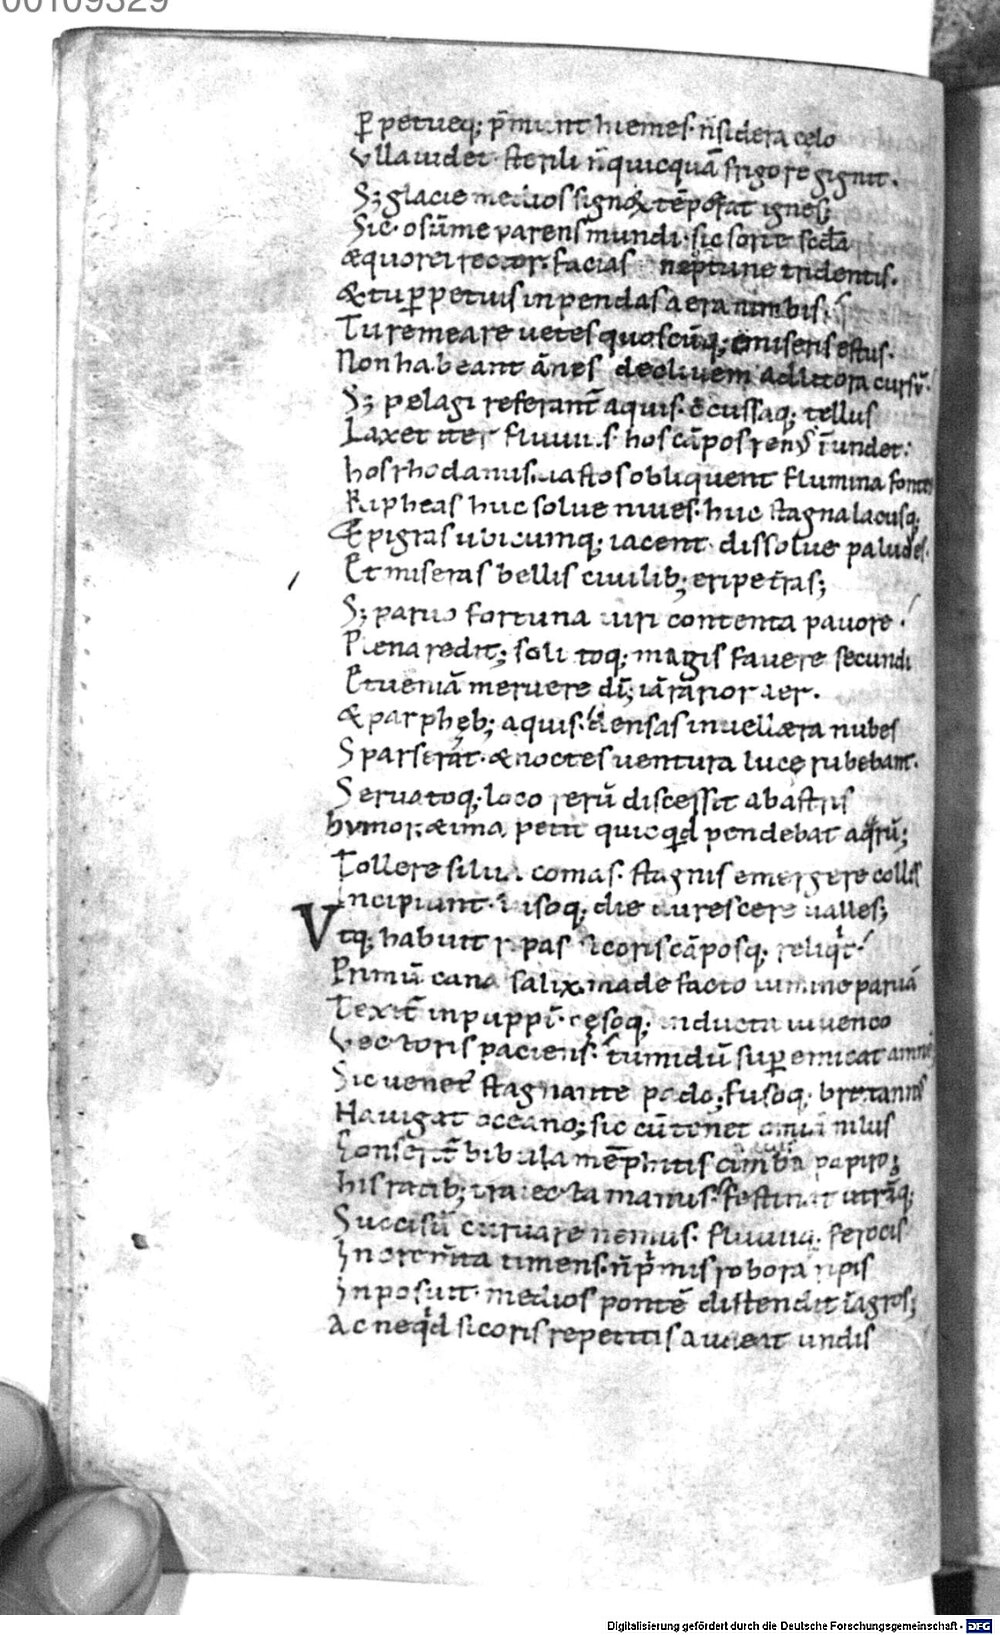 00109329
ꝑpetueq; p̄munt hiemes· ñ sidera celo
Vlla uidet· sterili ñ quicquā frigore gignit·
S; glacie medios signoꝝ tēperat ignes;
Sic· o sūme parens mundi· sic sorte scd̄a
æquorei rector· facias neptune tridentis·
& tu ꝑpetuis inpendas aera nimbis;
Tu remeare uetes quoscūq; emiseris estus·
Non habeant ānes decliuem ad litora cursū·
S; pelagi referant̄ aquis· c̄cussaq; tellus
Laxet iter fluuiis· hos cāpos renꝰ īundet·
hos rhodanus· uastos obliquent flumina fontes
Ripheas huc solue niues· huc stagna lacusq;
Et pigras ubicumq; iacent· dissolue paludes·
Et miseras bellis ciuilib; eripe t̄ras;
S; paruo fortuna uiri contenta pauore·
Plena redit; soli toq; magis fauere secundi
Et ueniā meruere dī; iā rārior aer·
& par phęb; aquis· densas in uellæra nubes
Sparserāt· & noctes uentura luce rubebant·
Seruatoq; loco rerū discessit ab astris
humor; & ima petit quicqͥd pendebat aqͣrū;
Tollere silua comas· stagnis emergere colles
Incipiunt· uisoq; die durescere ualles;
Vtq; habuit ripas sicoris cāposq; reliqͥt·
Primū cana salix madefacto uimine paruā
Texit̄ in puppī· cęsoq; inducta iuuenco
Vectoris paciens· tumidū suꝑ emicat amnē
Sic uenet᾿ stagnante pado; fusoq; bretannus
Nauigat occeano; sic cū tenet omia nilus
Conserit̄ bibula mēphitis cimba papiro;
his ratib; traiecta manus· festinat utrāq;
Succisū curuare nemus· fluuiiq; ferocis
Increm̄ta timens· ñ pͥmis robora ripis
Inposuit· medios pontē distendit ī agros;
Ac neqͥd sicoris repetitis audeat undis
Digitalisierung gefördert durch die Deutsche Forschungsgemeinschaft - DFG